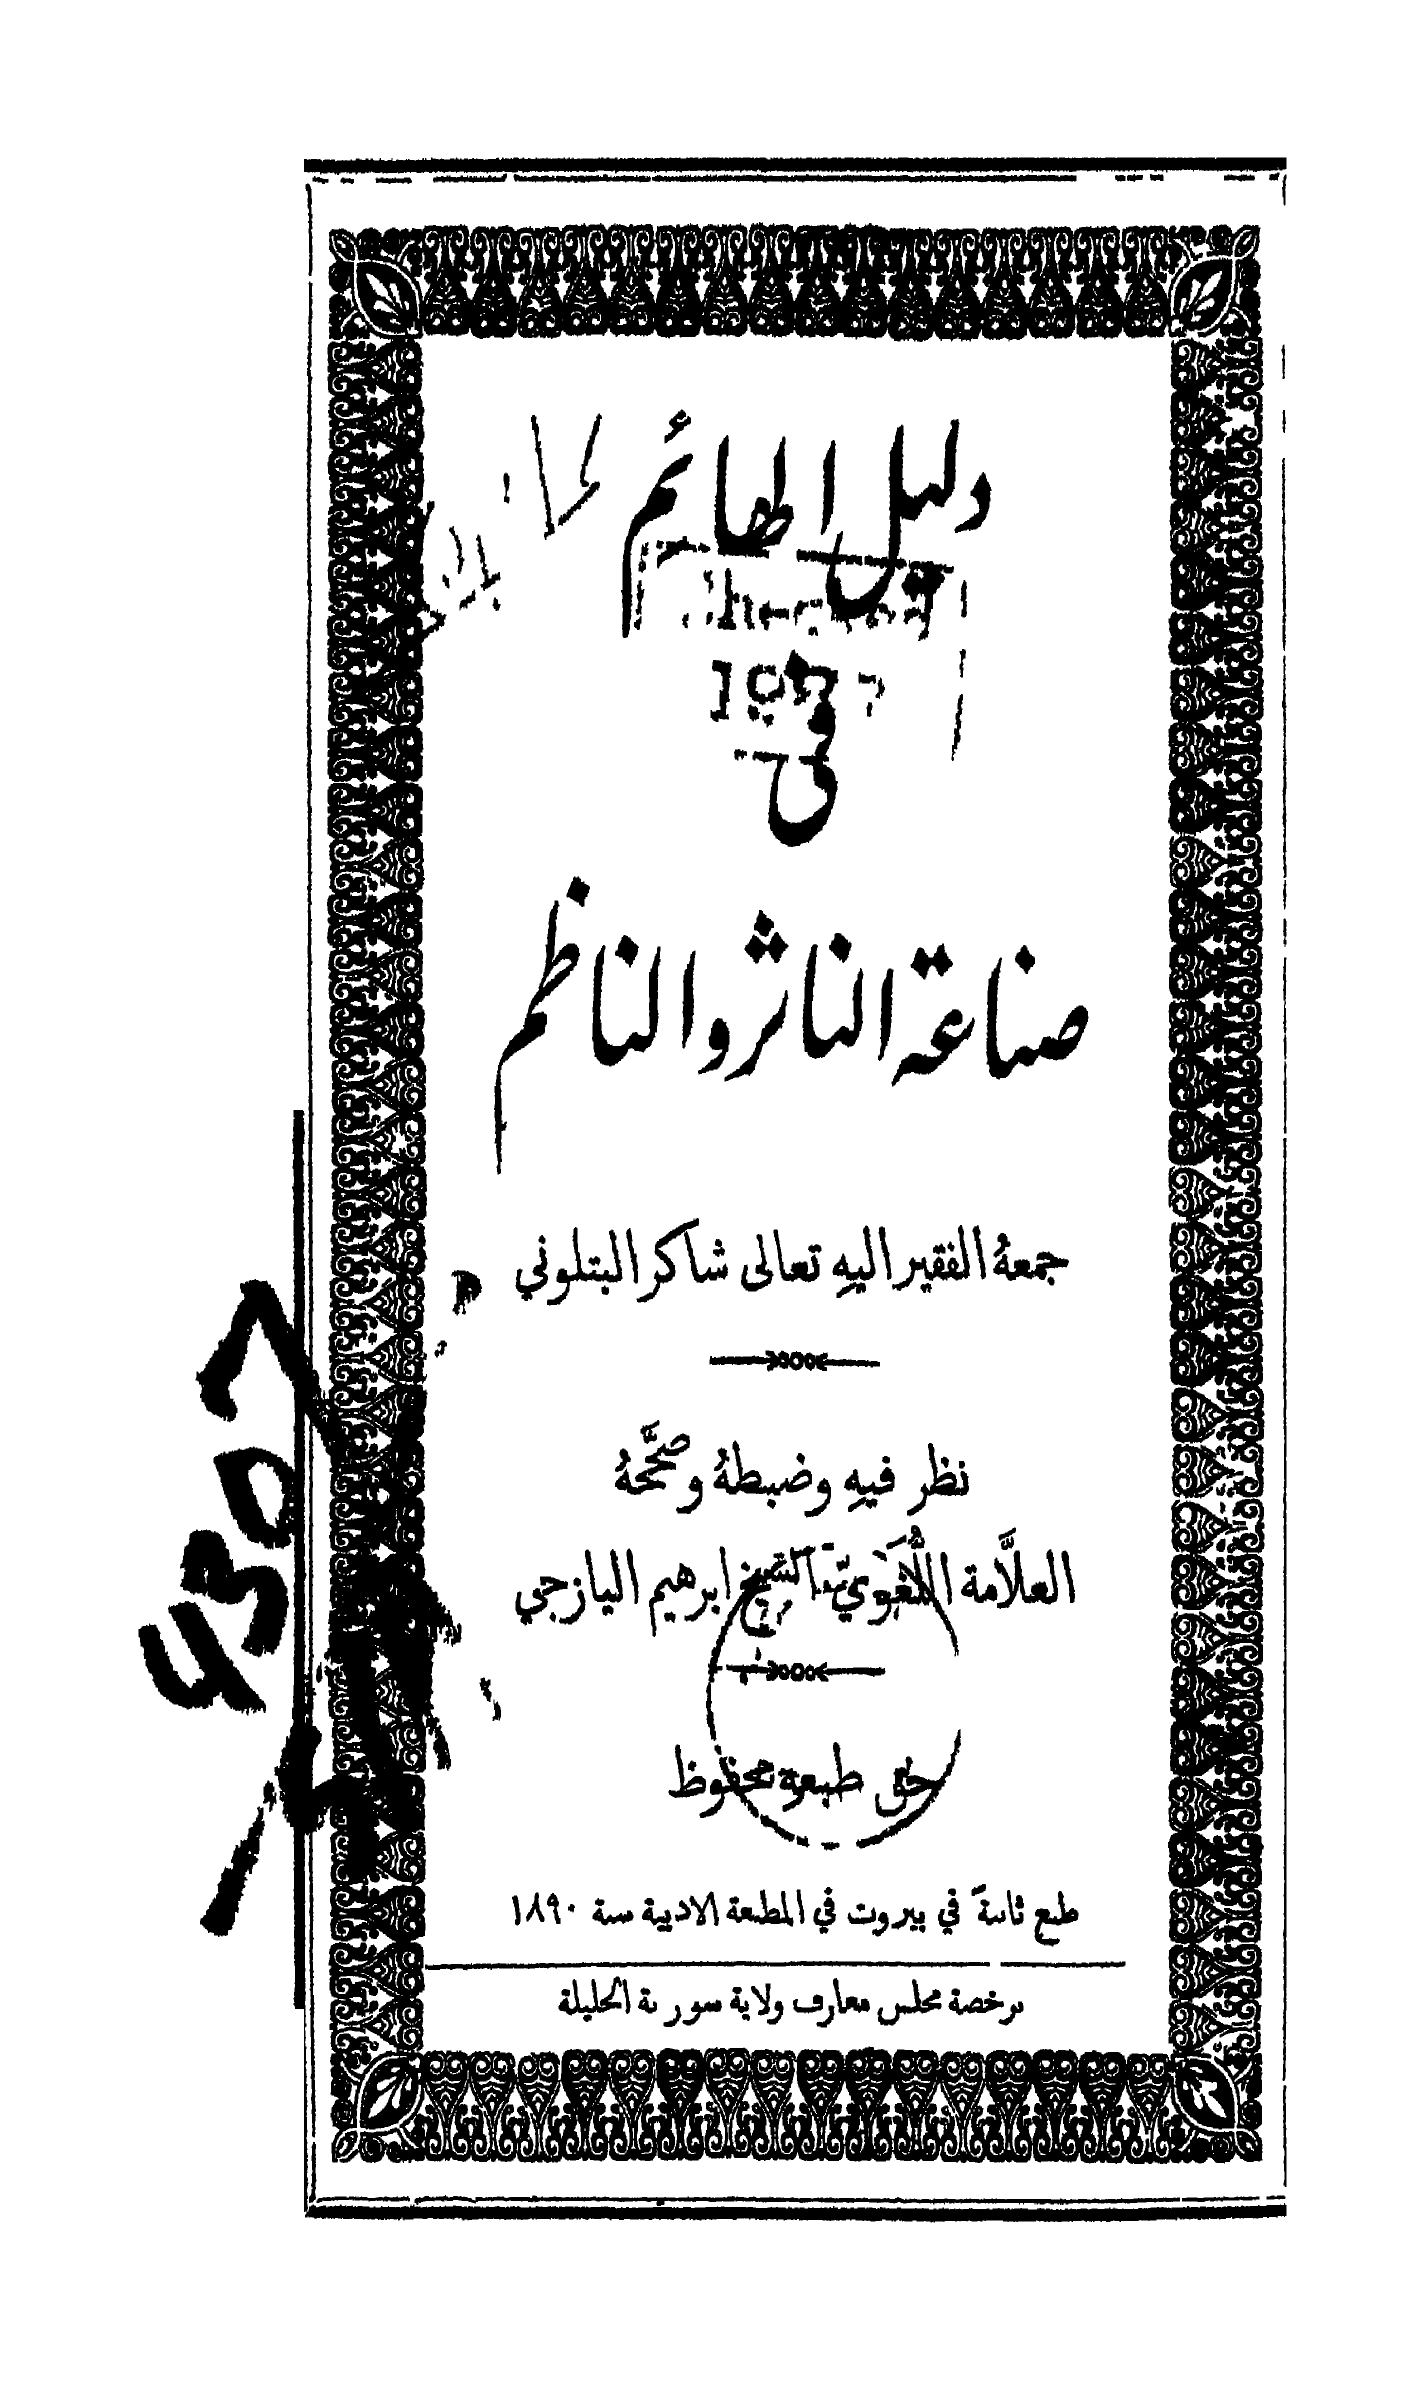 دليل الهائم
في
صناعة الناثر والناظم
جمعهُ الفقير اليهِ تعالى شاكر البتلوني
نظر فيهِ وضبطهُ وصحَّحهُ
العلاَّمة اللُّغَويّ الشيخ ابرهيم اليازجي
حق طبعهِ محفوظ
طبع ثانيةً في بيروت في المطبعة الادبية سنة ١٨٩٠
برخصة مجلس معارف ولاية سورية الجليلة
4307